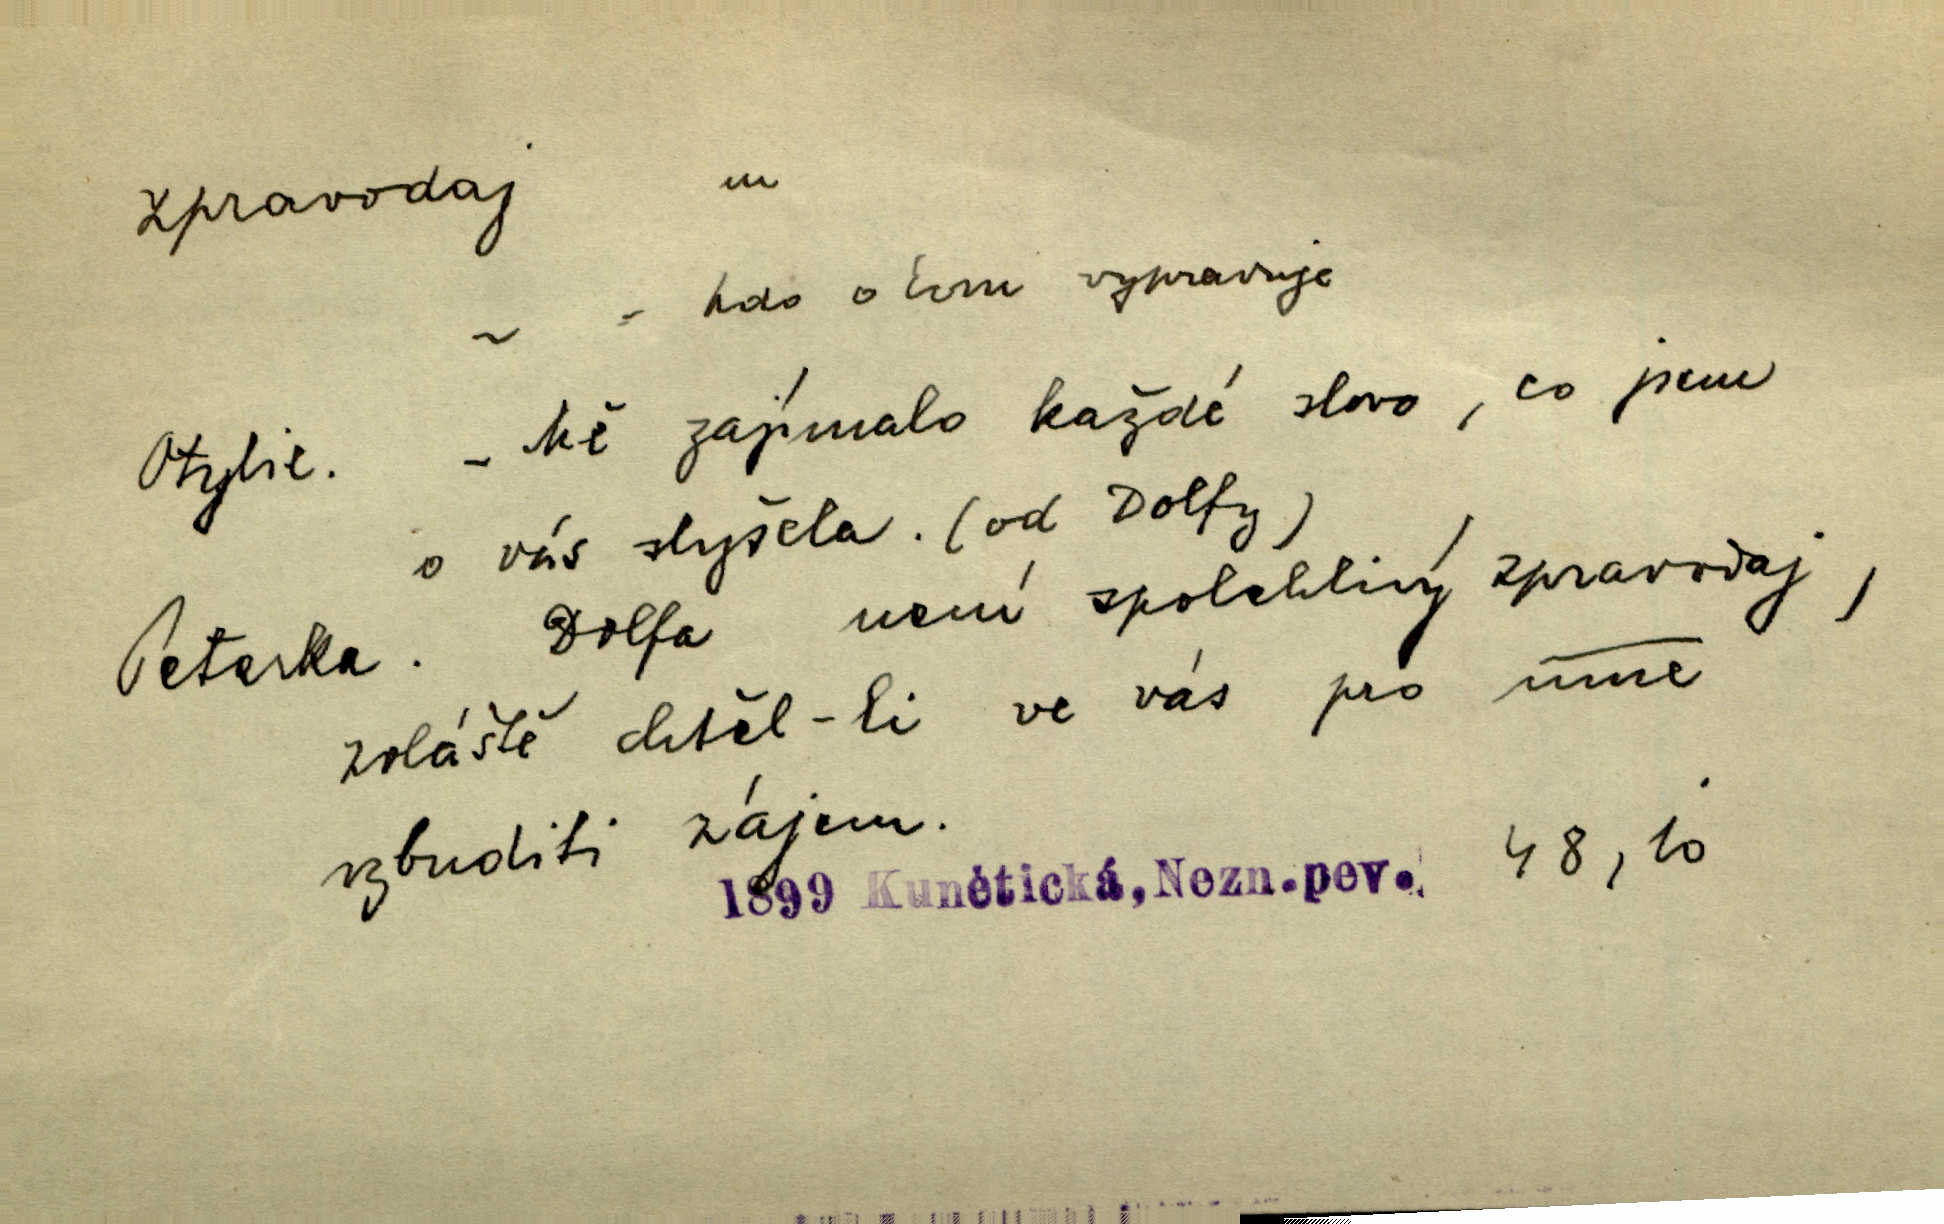 zpravodaj m
~ - kdo o čem vypravuje
Otylie. - Mě zajímalo každé slovo, co jsem
o vás slyšela. (od Dolfy)
Peterka. Dolfa není spolehlivý zpravodaj,
zvláště chtěl-li ve vás pro mne
vzbuditi zájem.
1899 Kunětická, Nezn.pev. 48, io